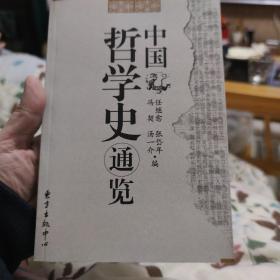 中国
哲学史
通览
任继愈 张岱年
冯契 汤一介·编
东方出版中心